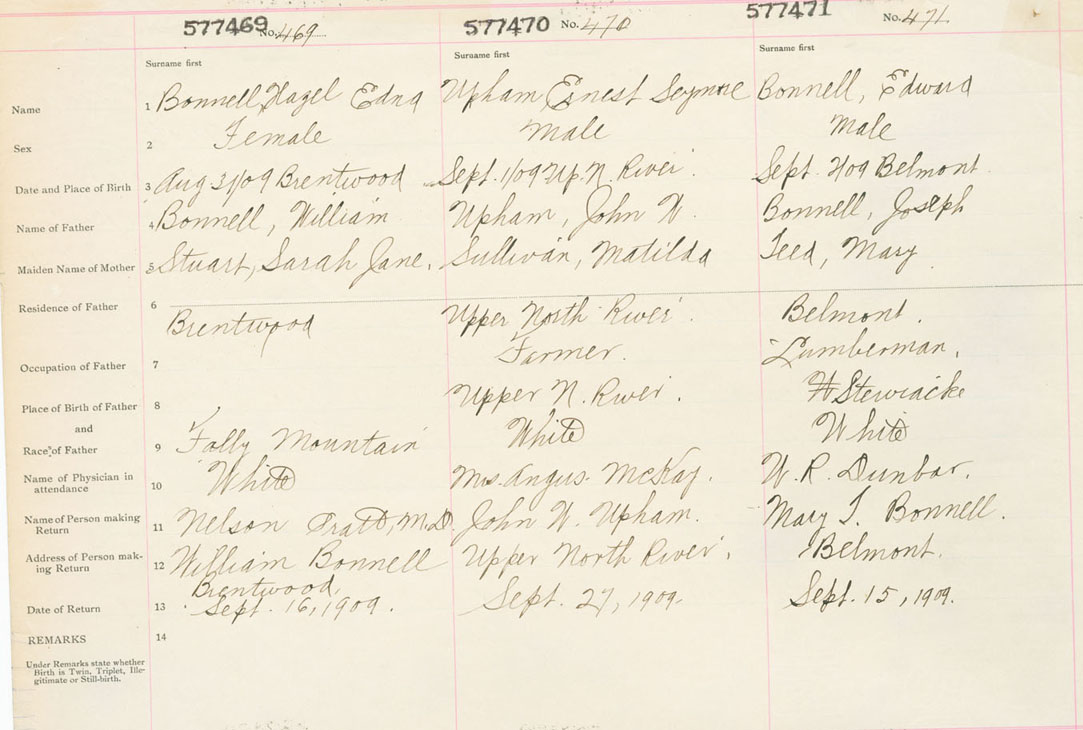 577469 No. 469 577470 No. 470 577471 No. 471
Surname first Surname first Surname first
Name 1 Bonnell, Hazel Edna Upham Ernest Seymore Bonnell, Edward
Sex 2 Female Male Male
Date and Place of Birth 3 Aug 31/09 Brentwood Sept. 1/09 Up. N. River. Sept. 2/09 Belmont.
Name of Father 4 Bonnell, William Upham, John W. Bonnell, Joseph
Maiden Name of Mother 5 Stuart, Sarah Jane. Sullivan, Matilda Teed, Mary
Residence of Father 6 Brentwood Upper North River. Belmont.
Occupation of Father 7 Farmer. Lumberman.
Place of Birth of Father 8 Upper N. River. Stewiacke
and
Race of Father 9 Folly Mountain White White
Name of Physician in
attendance 10 White Mrs. Angus McKay. W. R. Dunbar.
Name of Person making
Return 11 Nelson Pratt, M.D. John W. Upham. Mary T. Bonnell.
Address of Person mak-
ing Return 12 William Bonnell Upper North River. Belmont.
Brentwood,
Date of Return 13 Sept. 16, 1909. Sept. 27, 1909. Sept. 15, 1909.
REMARKS 14
Under Remarks state whether
Birth is Twin, Triplet, Ille-
gitimate or Still-birth.